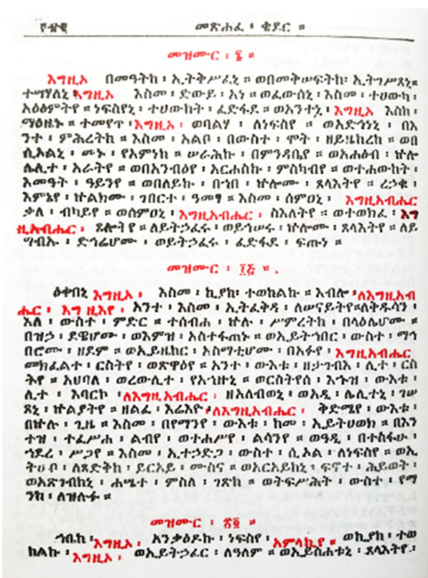 መጽሐፈ ፡ ቄደር ።
መዝሙር ፡ ፮ ።
እግዚኦ በመዓትከ ፡ ኢትቅሥፈኒ ። ወበመቅሠፍትከ ፡ ኢትገሥጸኒ ።
ተሣሃለኒ ፡ እግዚኦ እስመ ፡ ድውይ ፡ አነ ። ወፈውሰኒ ፡ እስመ ፡ ተሀውካ ፡
አዕፅምትየ ። ነፍስየኒ ፡ ተሀውከት ፡ ፈድፋደ ። ወአንተኒ ፡ እግዚኦ እስከ ፡
ማዕዜኑ ። ተመየጥ ፡ እግዚኦ ፡ ወባልሃ ፡ ለነፍስየ ። ወአድኅነኒ ፡ በእ
ንተ ፡ ምሕረትከ ። እስመ ፡ አልቦ ፡ በውስተ ፡ ሞት ፡ ዘይዜከረከ ። ወበ
ሲኦልኒ ፡ መኑ ፡ የአምነከ ። ሠራሕኩ ፡ በምንዳቤየ ። ወአሐፅብ ፡ ኵሎ
ሌሊተ ፡ አራትየ ። ወበአንብዕየ ፡ አርሐስኩ ፡ ምስካብየ ። ወተሐውከት ፡
እመዓት ፡ ዓይንየ ። ወበለይኩ ፡ በኀበ ፡ ኵሎሙ ፡ ጸላእትየ ። ረኃቁ ፡
እምኔየ ፡ ኵልክሙ ፡ ገበርተ ፡ ዓመፃ ። እስመ ፡ ሰምዐኒ ፡ እግዚአብሔር
ቃለ ፡ ብካይየ ። ወሰምዐኒ ፡ እግዚአብሔር ፡ ስእለትየ ። ወተወክፈ ፡ እግ
ዚአብሔር ፡ ጸሎትየ ። ለይትኃፈሩ ፡ ወይኅሠሩ ፡ ኵሎሙ ፡ ጸላእትየ ። ለይ
ግብኡ ፡ ድኅሬሆሙ ፡ ወይትኃፈሩ ፡ ፈድፋደ ፡ ፍጡነ ።
መዝሙር ፡ ፲፭ ።
ዕቀበኒ እግዚኦ ፡ እስመ ፡ ኪያከ ፡ ተወከልኩ ። እብሎ ፡ ለእግዚአብ
ሔር ፡ እግዚእየ ፡ አንተ ፡ እስመ ፡ ኢትፈቅዳ ፡ ለሠናይትየ ። ለቅዱሳን ፡
እለ ፡ ውስተ ፡ ምድር ። ተሰብሐ ፡ ኵሉ ፡ ሥምረትከ ፡ በላዕሌሆሙ ።
በዝኃ ፡ ደዌሆሙ ፡ ወእምዝ ፡ አስተፋጠኑ ። ወኢይትኃበር ፡ ውስተ ፡ ማኅ
በሮሙ ፡ ዘደም ። ወኢይዜከር ፡ አስማቲሆሙ ፡ በአፉየ ፡ እግዚአብሔር
መክፈልተ ፡ ርስትየ ፡ ወጽዋዕየ ። አንተ ፡ ውእቱ ፡ ዘታገብእ ፡ ሊተ ፡ ርስ
ትየ ። አህባለ ፡ ወረውሊተ ፡ የአኀዙኒ ። ወርስትየሰ ፡ እኁዝ ፡ ውእቱ ፡
ሊተ ፡ እባርኮ ፡ ለእግዚአብሔር ፡ ዘአለበወኒ ፡ ወአዲ ፡ ሌሊተኒ ፡ ገሠ
ጻኒ ፡ ኵልያትየ ። ዘልፈ ፡ እሬእዮ ፡ ለእግዚአብሔር ፡ ቅድሜየ ፡ ውእቱ ፡
በኵሉ ፡ ጊዜ ። እስመ ፡ በየማንየ ፡ ውእቱ ፡ ከመ ፡ ኢይትሀወክ ። በእን
ተዝ ፡ ተፈሥሐ ፡ ልብየ ፡ ወተሐሥየ ፡ ልሳንየ ። ወዓዲ ፡ በተስፋሁ ፡
ኀደረ ፡ ሥጋየ ። እስመ ፡ ኢተኃድጋ ፡ ውስተ ፡ ሲኦል ፡ ለነፍስየ ። ወኢ
ትሁቦ ፡ ለጻድቅከ ፡ ይርአይ ፡ ሙስና ። ወአርአይከኒ ፡ ፍኖተ ፡ ሕይወት ፡
ወአጽገብከኒ ፡ ሐሤተ ፡ ምስለ ፡ ገጽከ ። ወትፍሥሕት ፡ ውስተ ፡ የማ
ንከ ፡ ለዝሉፉ ።
መዝሙር ፡ ፳፬ ።
ኀቤከ ፡ እግዚኦ ፡ አንቃዕዶኩ ፡ ነፍስየ ፡ አምላኪየ ። ወኪያከ ፡ ተወ
ከልኩ ፡ እግዚኦ ፡ ወኢይትኃፈር ፡ ለዓለም ። ወኢይስሐቁኒ ፡ ጸላእትየ ።